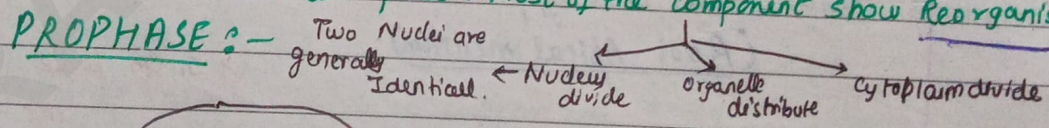 component show Reorganis
PROPHASE :- Two Nuclei are
generally
Identicall. ← Nucleus divide
Organelle distribute
Cytoplasm divide